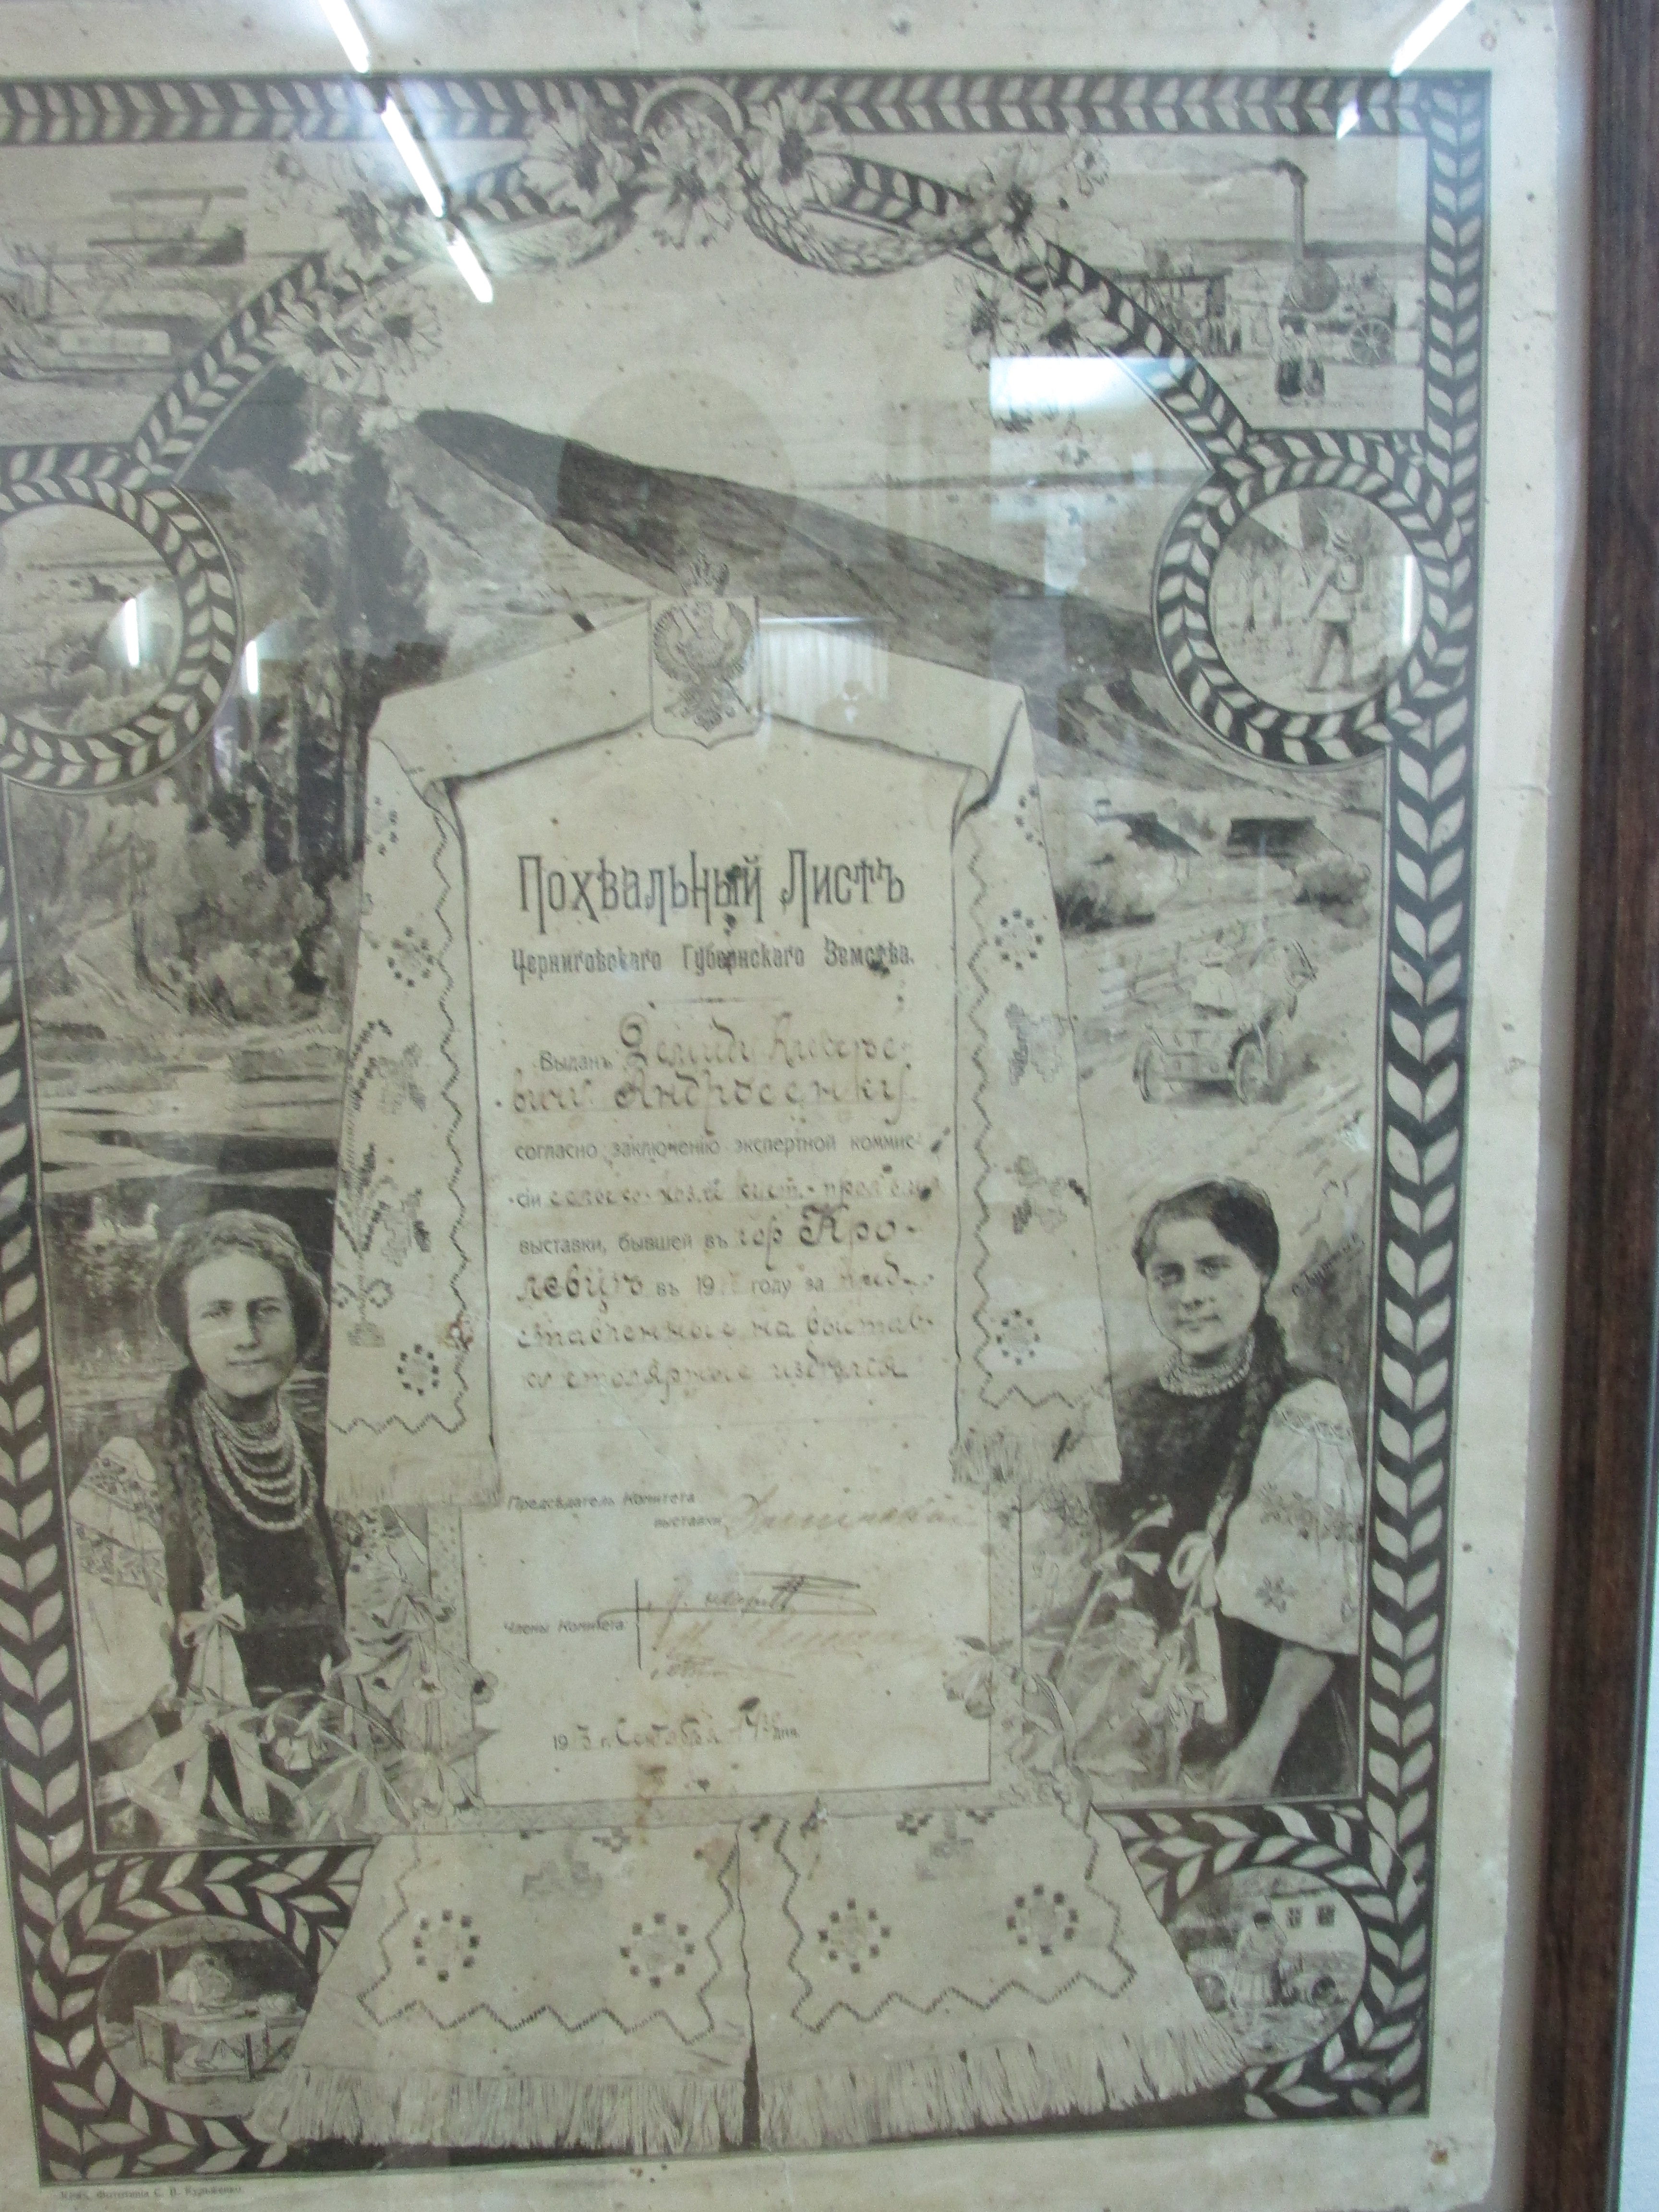 Похвальный Листъ
Черниговскаго Губернскаго Земства.
Выданъ Демиду Алексѣе-
вичу Андросенку
согласно заключению экспертной коммис-
сіи сельско-хоз. и куст.-пром.
выставки, бывшей въ гор Кро-
левцѣ въ 19 году за пред-
ставленные на выстав-
ку столярные издѣлія
Предсѣдатель Комитета
выставки
Члены Комитета
1913 г. Сентября дня
Кіевъ, Фототипія С. В. Кульженко.